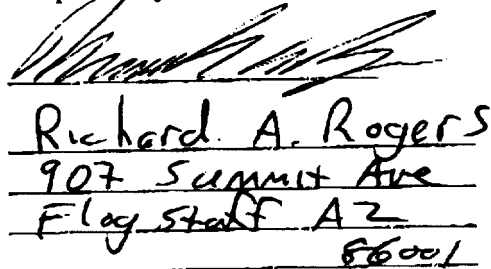 Richard. A. Rogers
907 Summit Ave
Flagstaff AZ
86001